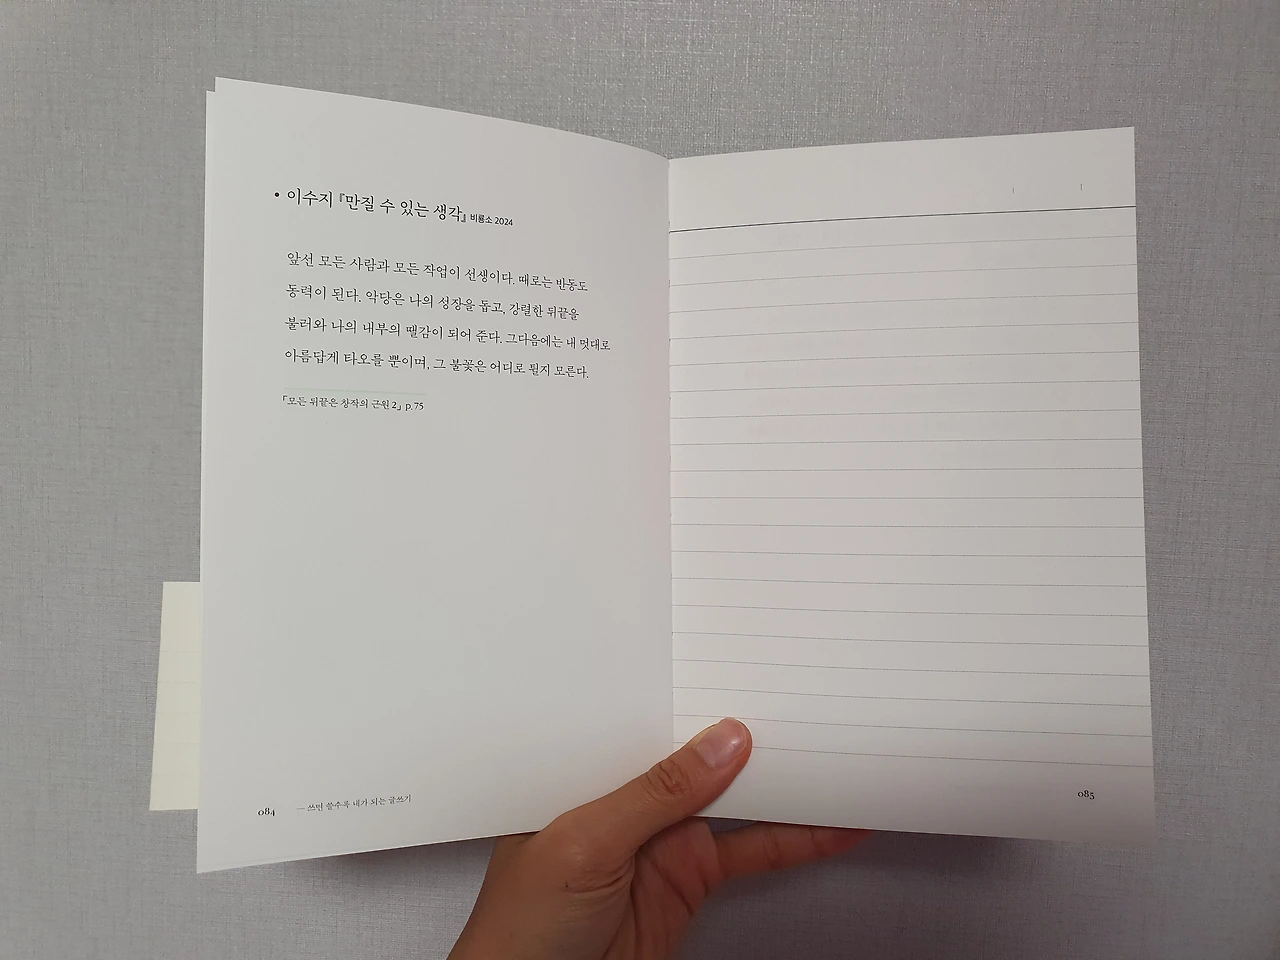 • 이수지 『만질 수 있는 생각』 비룡소 2024
앞선 모든 사람과 모든 작업이 선생이다. 때로는 반동도
동력이 된다. 악당은 나의 성장을 돕고, 강렬한 뒤끝을
불러와 나의 내부의 땔감이 되어 준다. 그다음에는 내 멋대로
아름답게 타오를 뿐이며, 그 불꽃은 어디로 튈지 모른다.
「모든 뒤끝은 창작의 근원 2」 p.75
084 — 쓰면 쓸수록 내가 되는 글쓰기
085